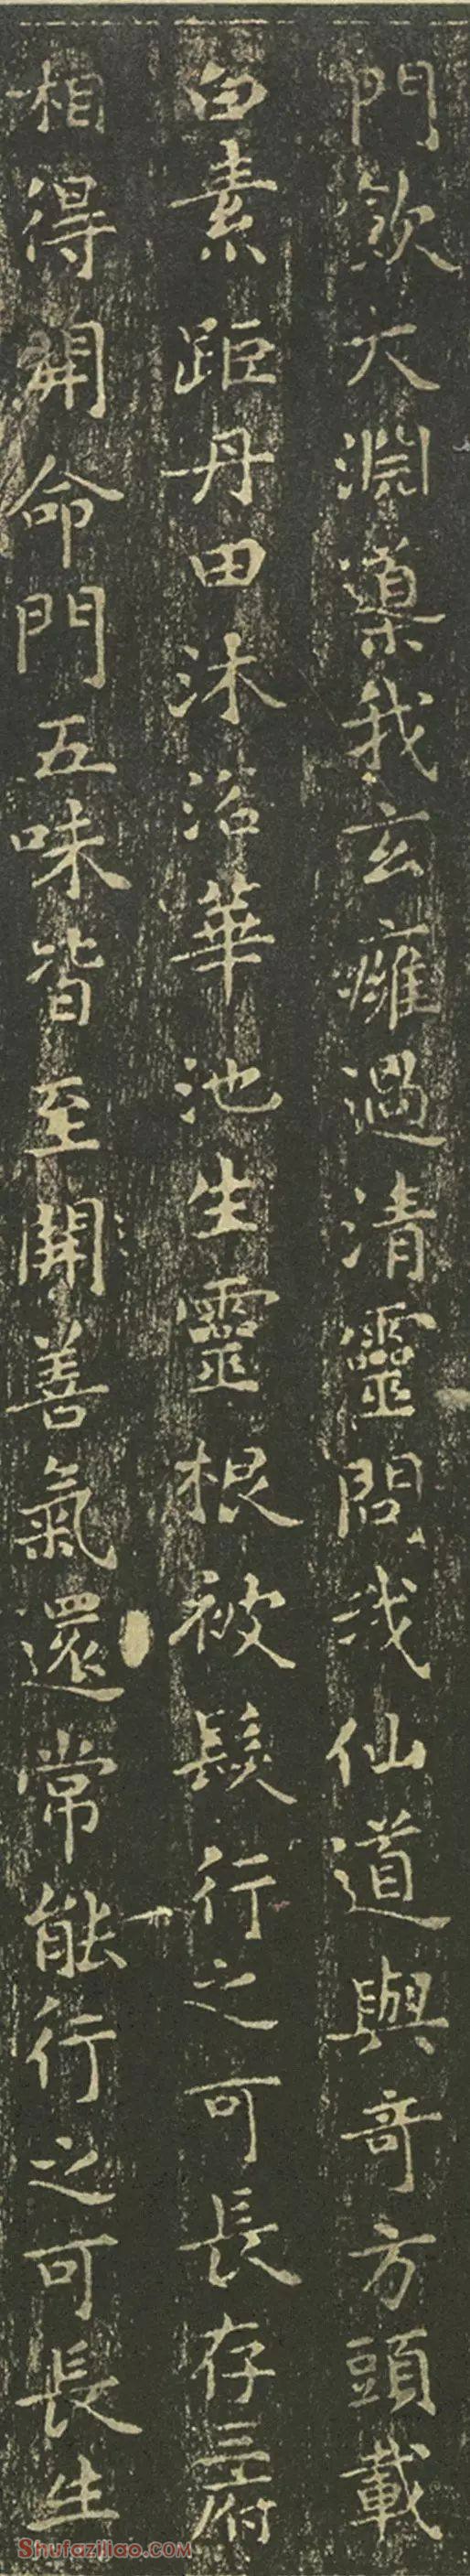 門飲大淵導我玄癰過清靈問我仙道與奇方頭載
白素距丹田沐浴華池生靈根被髮行之可長存三府
相得開命門五味皆至開善氣還常能行之可長生
Shufaziliao.com